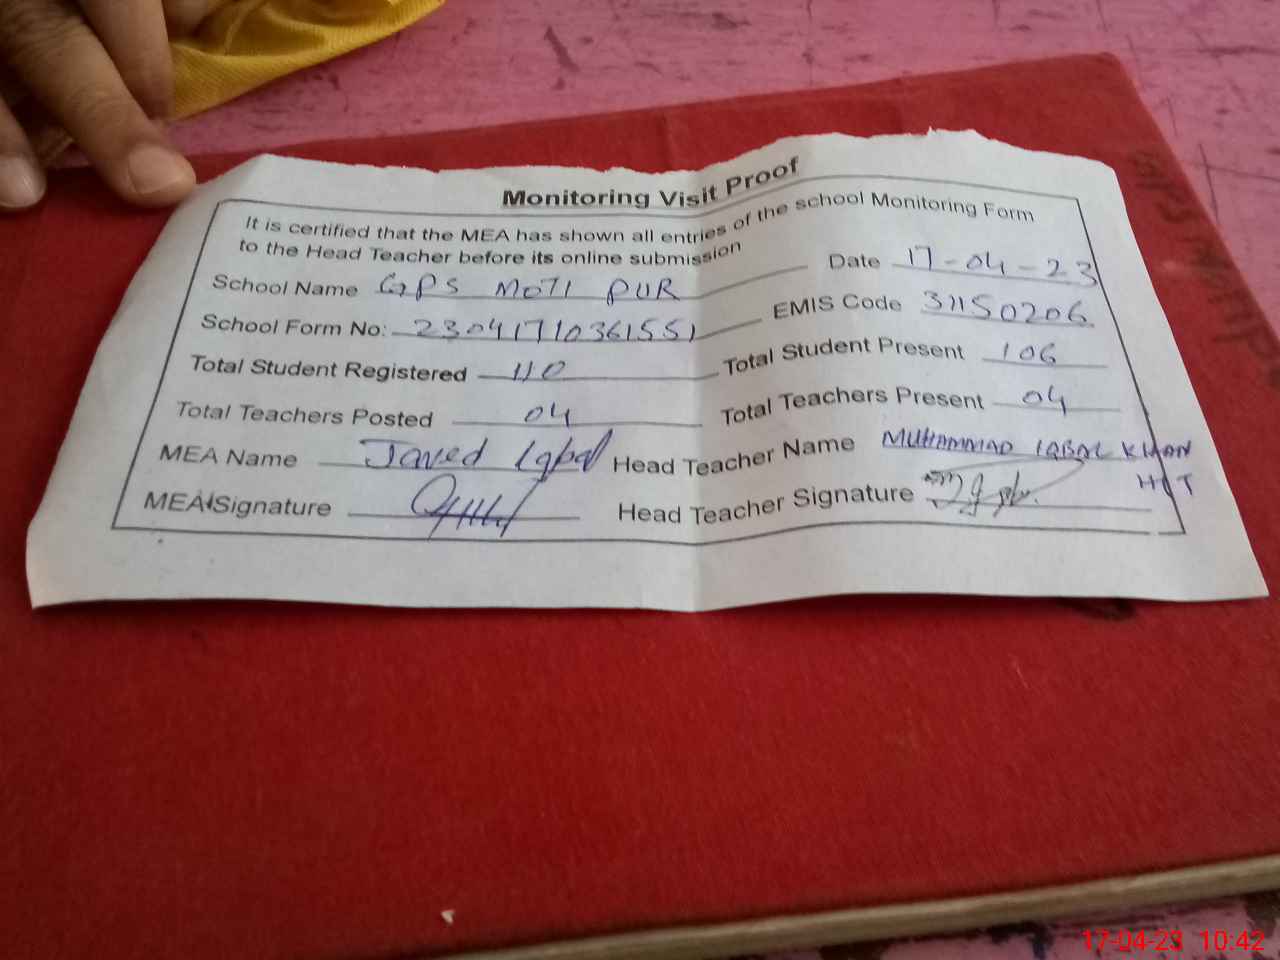 Monitoring Visit Proof
It is certified that the MEA has shown all entries of the school Monitoring Form
to the Head Teacher before its online submission
Date 17-04-23
School Name GPS MOTI PUR
EMIS Code 31150206
School Form No: 23041710361551
Total Student Registered 110
Total Student Present 106
Total Teachers Posted 04
Total Teachers Present 04
MEA Name Javed Iqbal
Head Teacher Name MUHAMMAD IQBAL KHAN
MEA Signature
Head Teacher Signature
H T
17-04-23 10:42